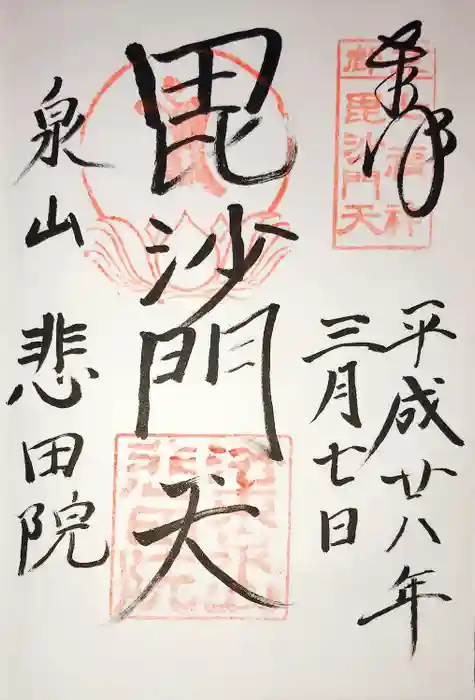 奉拝
平成廿八年
三月七日
毘沙門天
泉山
悲田院
毘沙門天